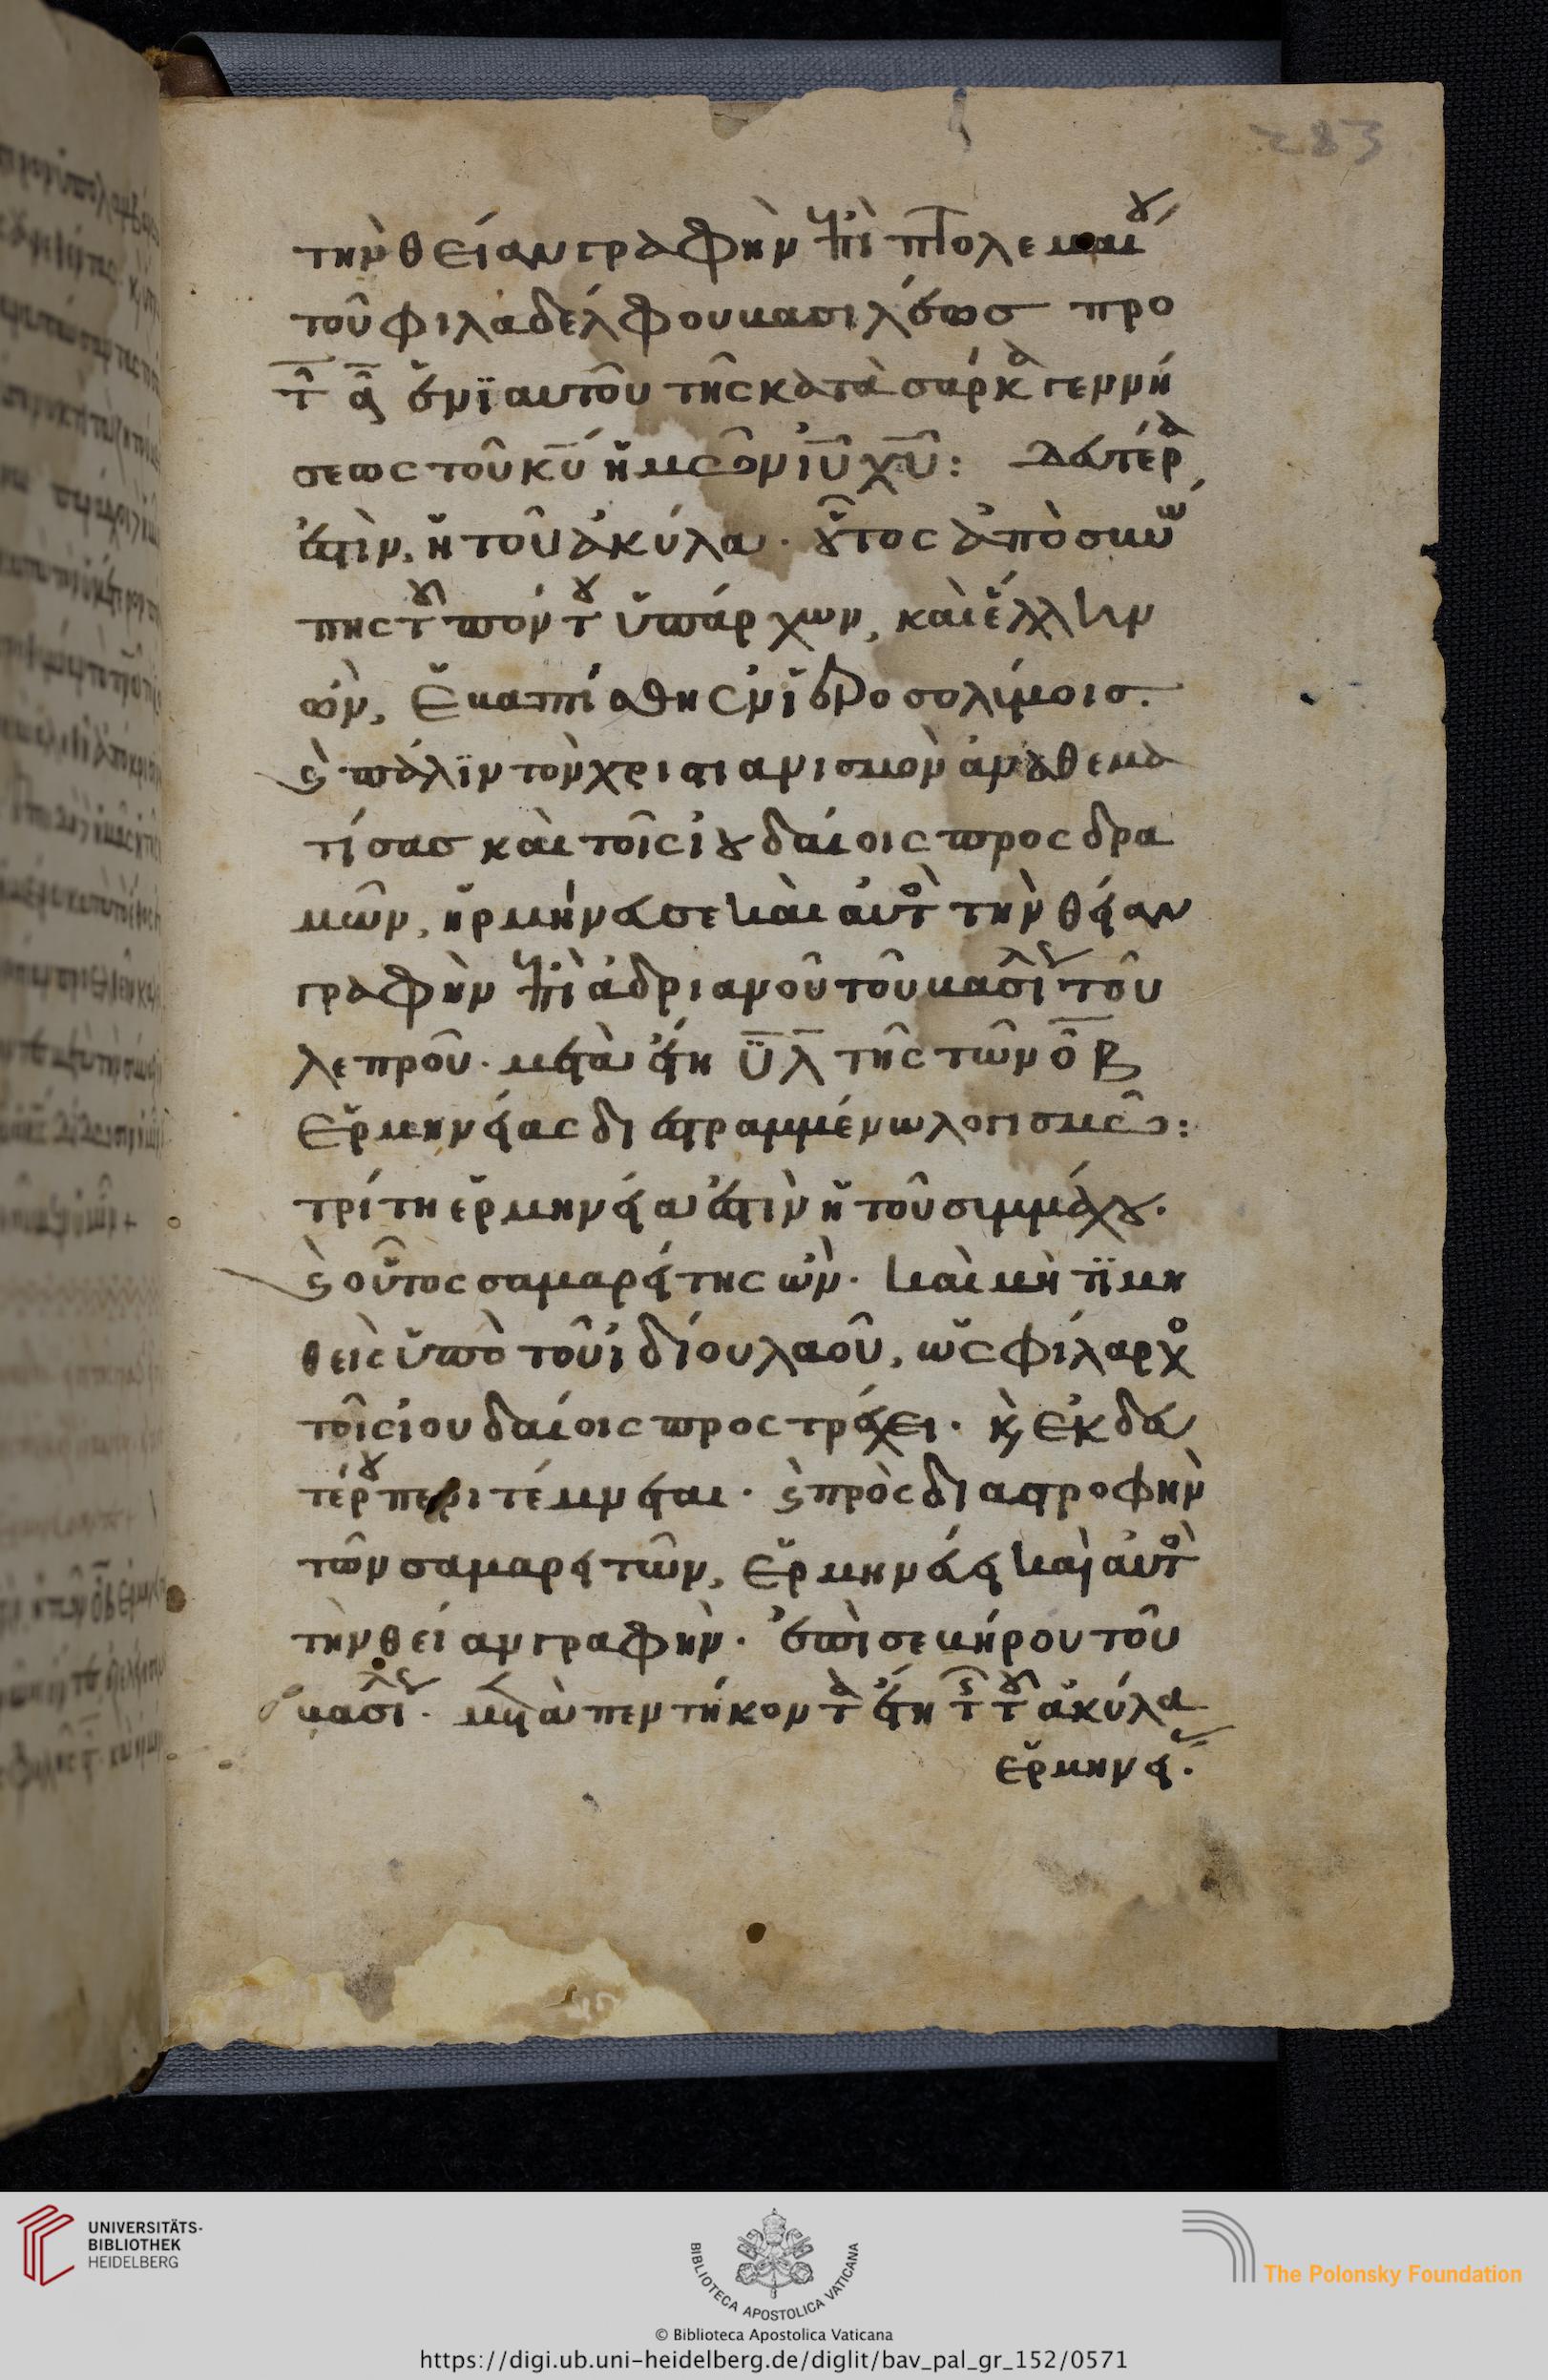 283
τὴν θείαν γραφὴν ἐπὶ πτολεμαίου
τοῦ φιλαδέλφου βασιλέως προ
τ̅ α̅ ἐνϊαυτοῦ τῆς κατὰ σάρκα γεννή
σεως τοῦ κ̅υ̅ ἡμῶν ι̅υ̅ χ̅υ̅: Δευτέρα
ἐστιν, ἡ τοῦ ἀκύλα · οὗτος ἀπὸ σινώ
πης τοῦ πόντου ὑπάρχων, καὶ ἕλλην
ὢν, ἐβαπτίσθη ἐν ἱεροσολύμοις.
καὶ πάλϊν τὸν χριστιανισμὸν ἀναθεμα
τίσας καὶ τοῖς ἰουδαίοις προσδρα
μῶν, ἡρμήνευσε καὶ αὐτὸς τὴν θείαν
γραφὴν ἐπὶ ἀδριανοῦ τοῦ βασιλέως τοῦ
λεπροῦ · μετὰ ἔτη υ̅ λ̅ τῆς τῶν ο̅β̅
ἑρμηνείας διεστραμμένω λογισμῶ:
τρίτη ἑρμηνεία ἐστὶν ἡ τοῦ συμμάχου.
καὶ οὗτος σαμαρείτης ὢν · καὶ μὴ τϊμη
θεὶς ὑπὸ τοῦ ἰδίου λαοῦ, ὡς φίλαρχος
τοῖς ἰουδαίοις προστρέχει · καὶ ἐκ δευ
τέρου περιτέμνεται · καὶ πρὸς διαστροφὴν
τῶν σαμαρειτῶν, ἑρμηνεύει καὶ αὐτὸς
τὴν θείαν γραφὴν · ἐπὶ σευήρου τοῦ
βασιλέως · μετὰ πεντήκοντα ἔτη τῆς τοῦ ἀκύλα
ἑρμηνείας.
UNIVERSITÄTS-
BIBLIOTHEK
HEIDELBERG
BIBLIOTECA APOSTOLICA VATICANA
© Biblioteca Apostolica Vaticana
The Polonsky Foundation
https://digi.ub.uni-heidelberg.de/diglit/bav_pal_gr_152/0571